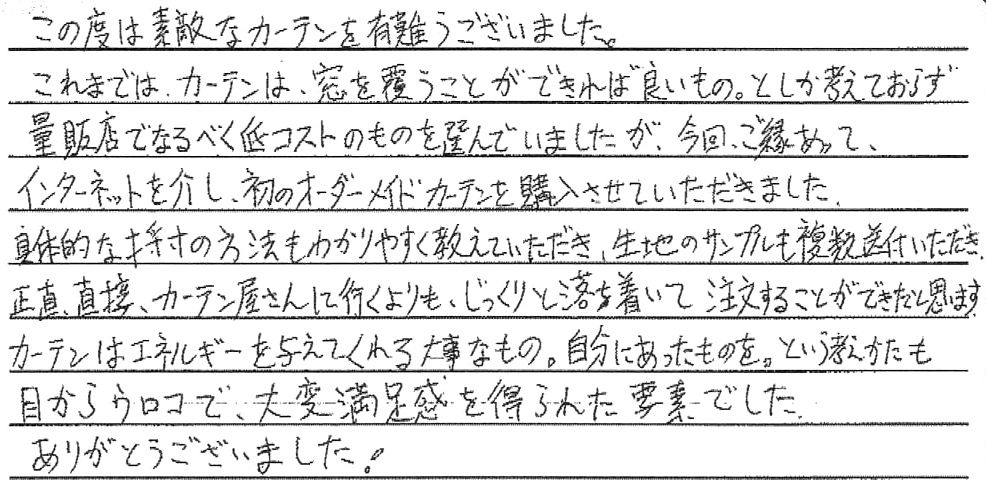 この度は素敵なカーテンを有難うございました。
これまでは、カーテンは、窓を覆うことができれば良いもの。としか考えておらず
量販店でなるべく低コストのものを選んでいましたが、今回、ご縁あって、
インターネットを介し、初のオーダーメイドカーテンを購入させていただきました。
具体的な採寸の方法もわかりやすく教えていただき、生地のサンプルも複数送付いただき、
正直、直接、カーテン屋さんに行くよりも、じっくりと落ち着いて注文することができたと思います
カーテンはエネルギーを与えてくれる大事なもの。自分にあったものを。という考えかたも
目からウロコで、大変満足感を得られた要素でした。
ありがとうございました！